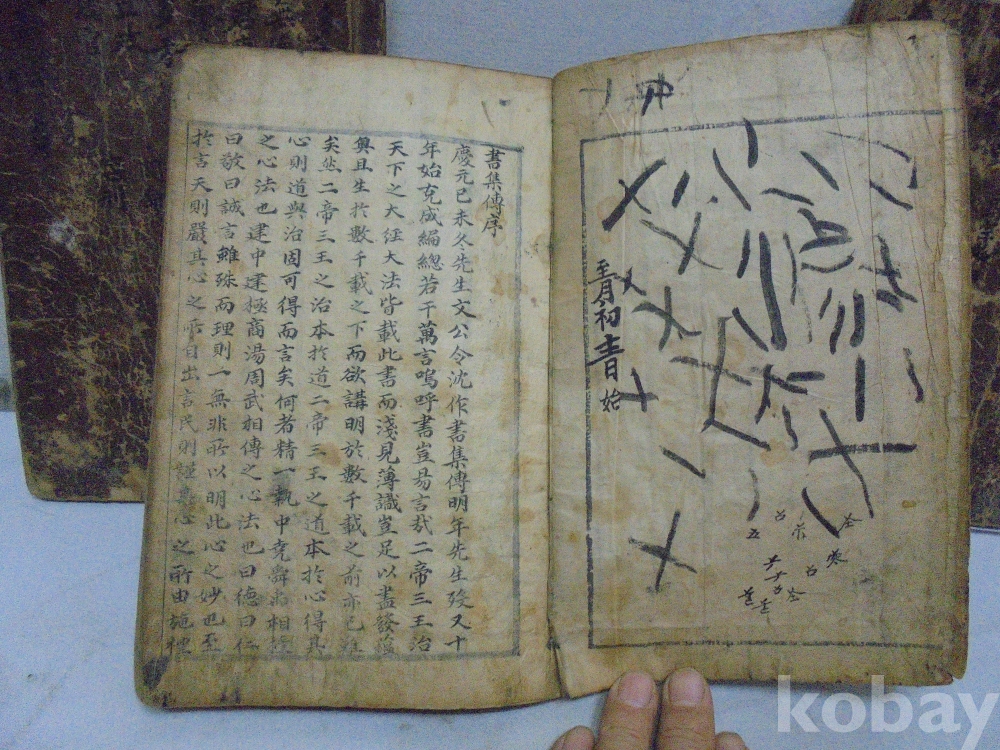 至月初
始
書集傳序
慶元己未冬先生文公令沈作書集傳明年先生歿又十
年始克成編總若干萬言嗚呼書豈易言哉二帝三王治
天下之大經大法皆載此書而淺見薄識豈足以盡發蘊
奧且生於數千載之下而欲講明於數千載之前亦已難
矣然二帝三王之治本於道二帝三王之道本於心得其
心則道與治固可得而言矣何者精一執中堯舜禹相授
之心法也建中建極商湯周武相傳之心法也曰德曰仁
曰敬曰誠言雖殊而理則一無非所以明此心之妙也至
於言天則嚴其心之所自出言民則謹其心之所由施禮
kobay